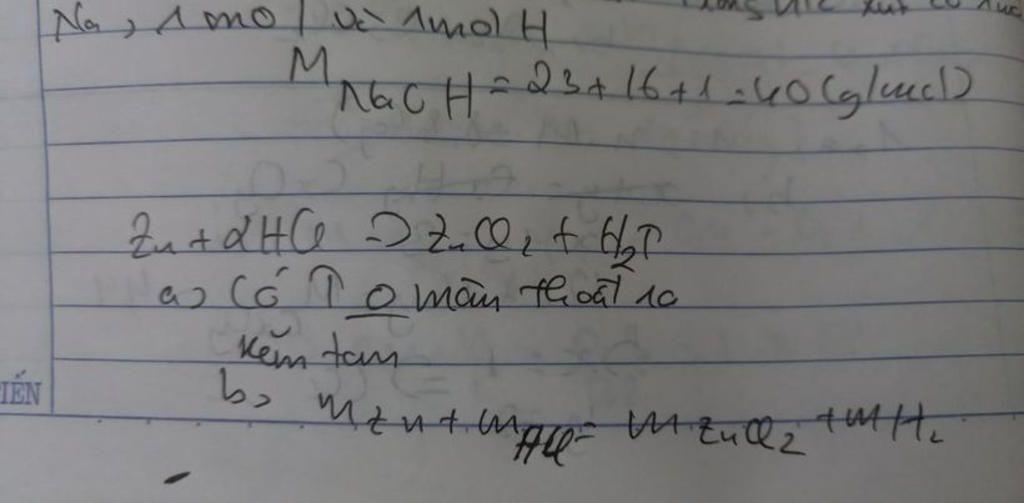 Na, 1 mol và 1mol H
M NaOH = 23 + 16 + 1 = 40 (g/mol)
Zn + 2HCl → ZnCl2 + H2↑
a, Có ↑ O màu thoát ra
kẽm tan
IẾN
b, mZn + mHCl = mZnCl2 + mH2